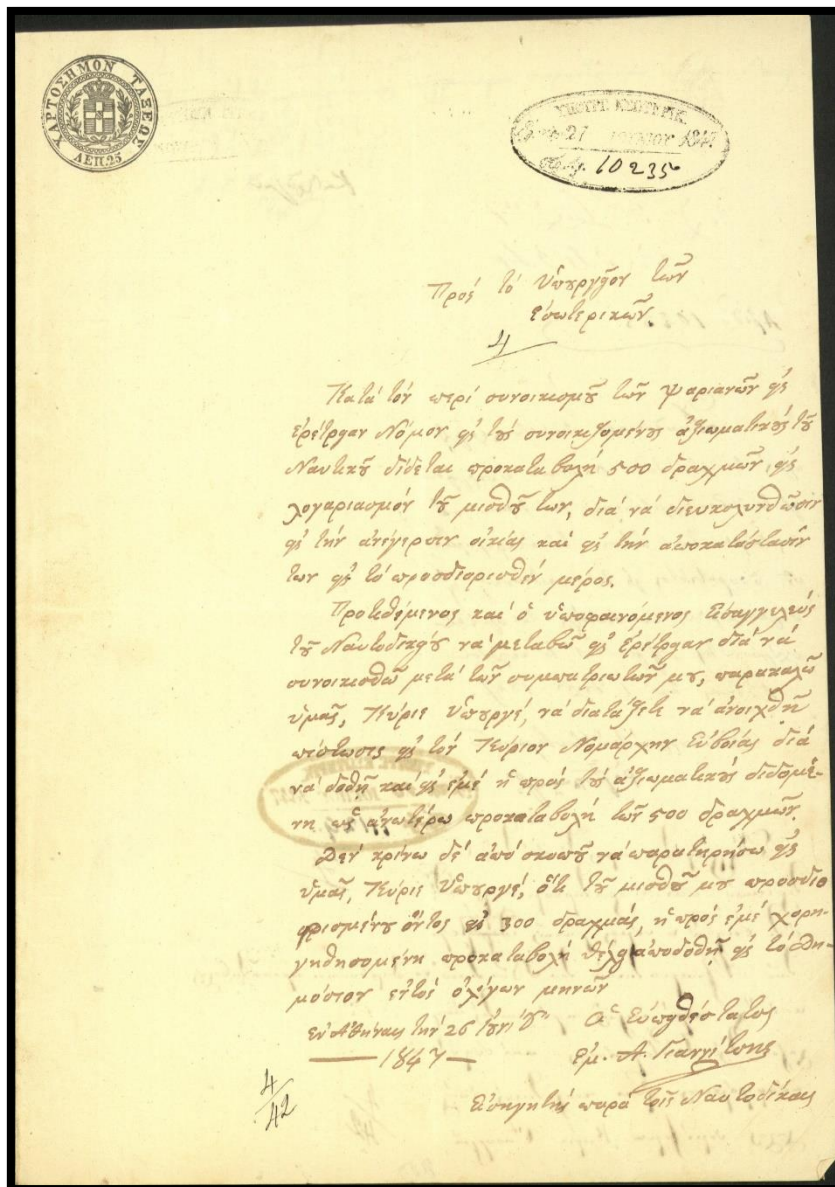 ΧΑΡΤΟΣΗΜΟΝ ΤΑΞΕΩΣ
ΛΕΠ. 25
ΥΠΟΥΡΓ. ΕΣΩΤΕΡΙΚ.
27 ΙΟΥΝΙΟΥ 1847
10235
Πρὸς τὸ Ὑπουργεῖον τῶν
Ἐσωτερικῶν.
Κατὰ τὸν περὶ συνοικισμοῦ τῶν Ψαριανῶν εἰς
Ἐρέτρειαν Νόμον εἰς τοὺς συνοικιζομένους ἀξιωματικοὺς τοῦ
Ναυτικοῦ δίδεται προκαταβολὴ 500 δραχμῶν εἰς
λογαριασμὸν τοῦ μισθοῦ των, διὰ νὰ διευκολυνθῶσιν
εἰς τὴν ἀνέγερσιν οἰκίας καὶ εἰς τὴν ἀποκατάστασίν
των εἰς τὸ προσδιορισθὲν μέρος.
Προτιθέμενος καὶ ὁ ὑποφαινόμενος Εἰσαγγελεὺς
τοῦ Ναυτοδικείου νὰ μεταβῶ εἰς Ἐρέτρειαν διὰ νὰ
συνοικισθῶ μετὰ τῶν συμπατριωτῶν μου, παρακαλῶ
ὑμᾶς, Κύριε Ὑπουργέ, νὰ διατάξετε νὰ ἀνοιχθῇ
πίστωσις εἰς τὸν Κύριον Νομάρχην Εὐβοίας διὰ
νὰ δοθῇ καὶ εἰς ἐμὲ ἡ πρὸς τοὺς ἀξιωματικοὺς διδομέ-
νη ὡς ἀνωτέρω προκαταβολὴ τῶν 500 δραχμῶν.
Δὲν κρίνω δὲ ἀπὸ σκοποῦ νὰ παρατηρήσω εἰς
ὑμᾶς, Κύριε Ὑπουργέ, ὅτι τοῦ μισθοῦ μου προσδιο
ρισμένου ὄντος εἰς 300 δραχμάς, ἡ πρὸς ἐμὲ χορη-
γηθησομένη προκαταβολὴ θέλει ἀποδοθῆ εἰς τὸ Δη-
μόσιον ἐντὸς ὀλίγων μηνῶν
Ἐν Ἀθήναις τὴν 26 Ἰουνίου Ὁ Εὐπειθέστατος
1847 Ἐμ. Α. Γιαννίτσης
Εἰσηγητὴς παρὰ τοῖς Ναυτοδίκαις
4
42